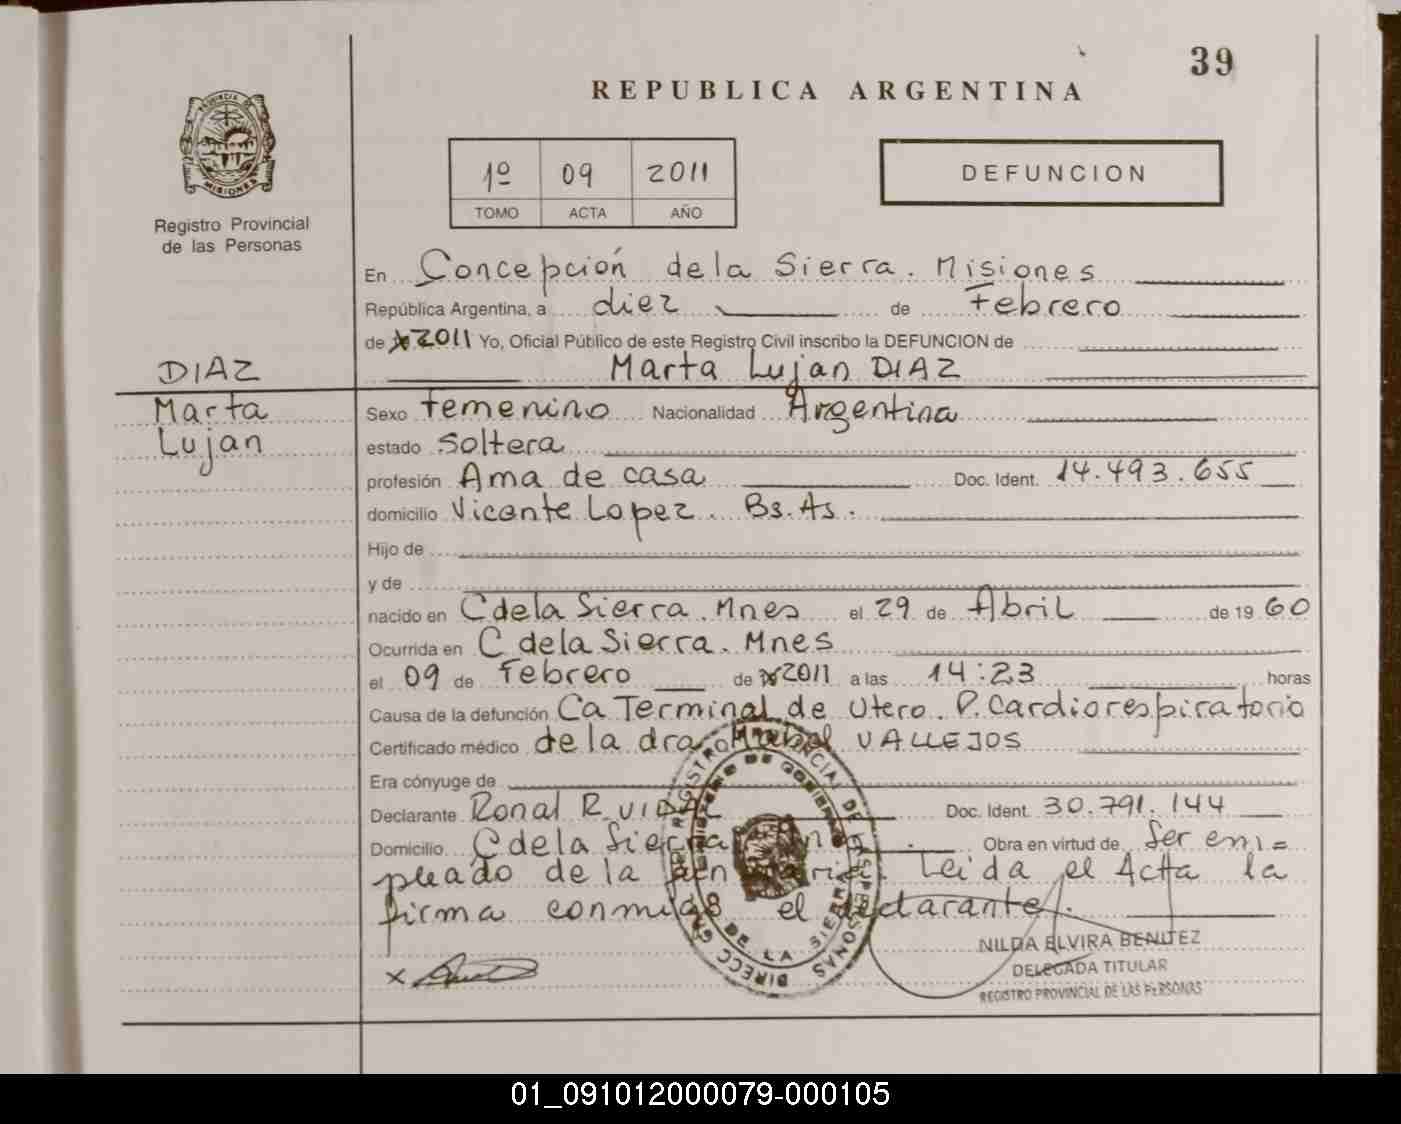 39
REPUBLICA ARGENTINA
PROVINCIA DE MISIONES
Registro Provincial
de las Personas
1º 09 2011
TOMO ACTA AÑO
DEFUNCION
En Concepción de la Sierra. Misiones
República Argentina, a diez de Febrero
de 2011 Yo, Oficial Público de este Registro Civil inscribo la DEFUNCION de
DIAZ
Marta Lujan DIAZ
Marta
Lujan
Sexo Femenino Nacionalidad Argentina
estado Soltera
profesión Ama de casa Doc. Ident. 14.493.655
domicilio Vicente Lopez. Bs. As.
Hijo de
y de
nacido en C de la Sierra. Mnes el 29 de Abril de 1960
Ocurrida en C de la Sierra. Mnes
el 09 de Febrero de 2011 a las 14:23 horas
Causa de la defunción Ca Terminal de Utero. P. Cardiorespiratorio
Certificado médico de la dra VALLEJOS
Era cónyuge de
Declarante Ronal R. Doc. Ident. 30.791.144
Domicilio C de la Sierra Obra en virtud de Ser em=
pleado de la Leida el Acta la
firma conmigo el declarante.
NILDA ELVIRA BENITEZ
DELEGADA TITULAR
REGISTRO PROVINCIAL DE LAS PERSONAS
x
DIRECC GRAL REGISTRO PROVINCIAL DE LAS PERSONAS
MINISTERIO DE GOBIERNO
DE LA SIERRA
01_091012000079-000105